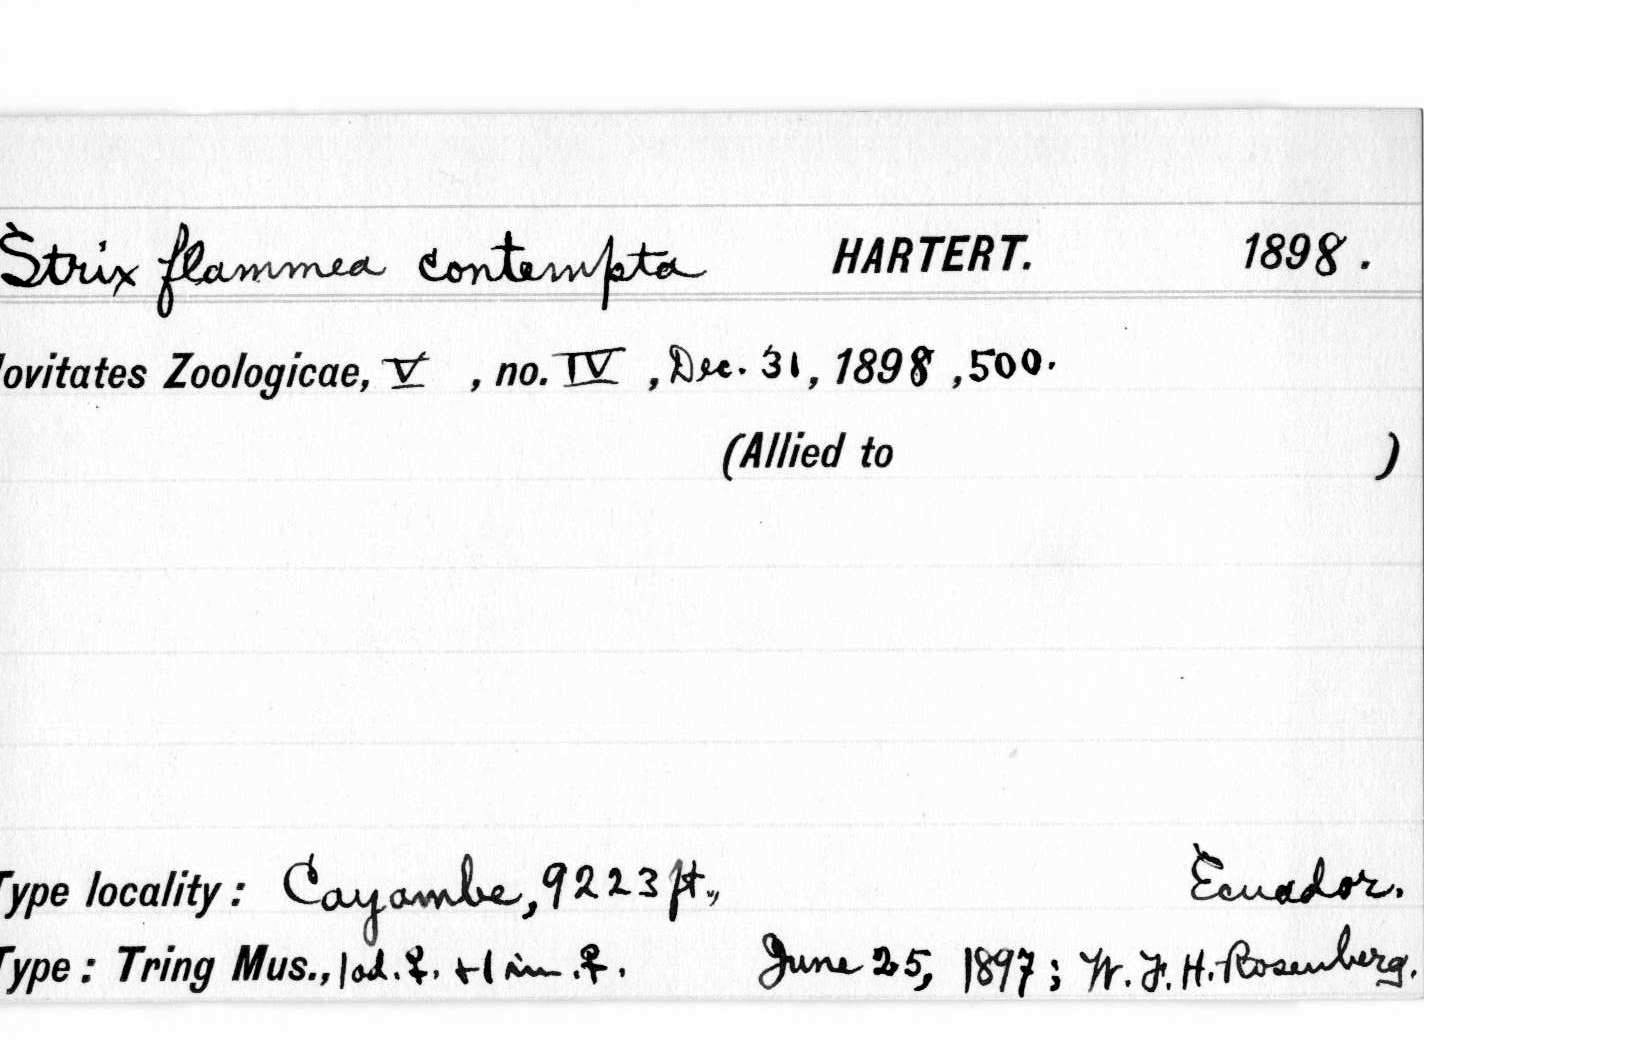 Strix flammea contempta HARTERT. 1898.
ovitates Zoologicae, V, no. IV, Dec. 31, 1898, 500.
(Allied to )
Type locality: Cayambe, 9223 ft., Ecuador.
Type: Tring Mus., 1 ad. ♀. + 1 im. ♀. June 25, 1897; W. F. H. Rosenberg.